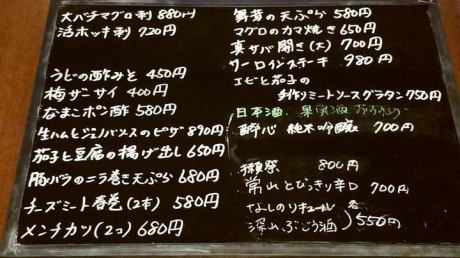 大バチマグロ刺 880円
活ホッキ刺 720円
うどの酢みそ 450円
梅ザーサイ 400円
なまこポン酢 580円
生ハムとジェノバソースのピザ 890円
茄子と豆腐の揚げ出し 650円
豚バラのニラ巻き天ぷら 680円
チーズミート春巻(2本) 580円
メンチカツ(2コ) 680円
舞茸の天ぷら 580円
マグロのカマ焼き 650円
真サバ開き(大) 700円
サーロインステーキ 980円
エビと茄子の
手作りミートソースグラタン 750円
日本酒 果実酒
酔心 純米吟醸 700円
獺祭 800円
常山 とびっきり辛口 700円
なしのリキュール 各
深山ぶどう酒 550円